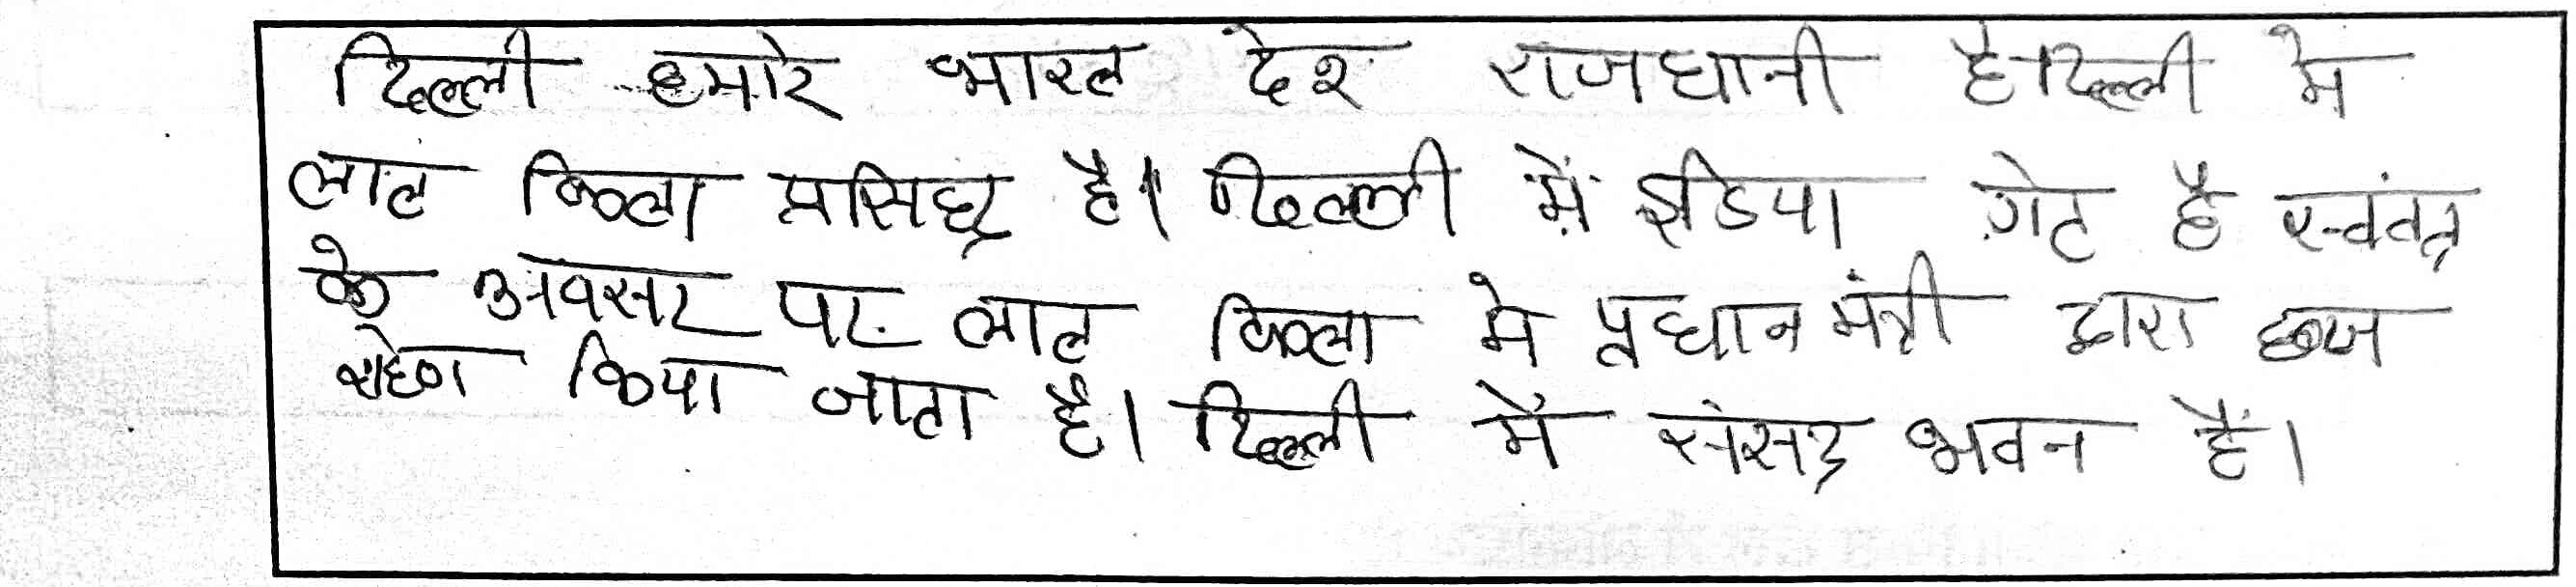 दिल्ली हमारे भारत देश राजधानी है। दिल्ली मे
लाल किला प्रसिद्द है। दिल्ली में इंडिया गेट है स्वंतत्र
के अवसर पर लाल किला मे प्रधान मंत्री द्वारा
किया जाता है। दिल्ली में संसद भवन है।